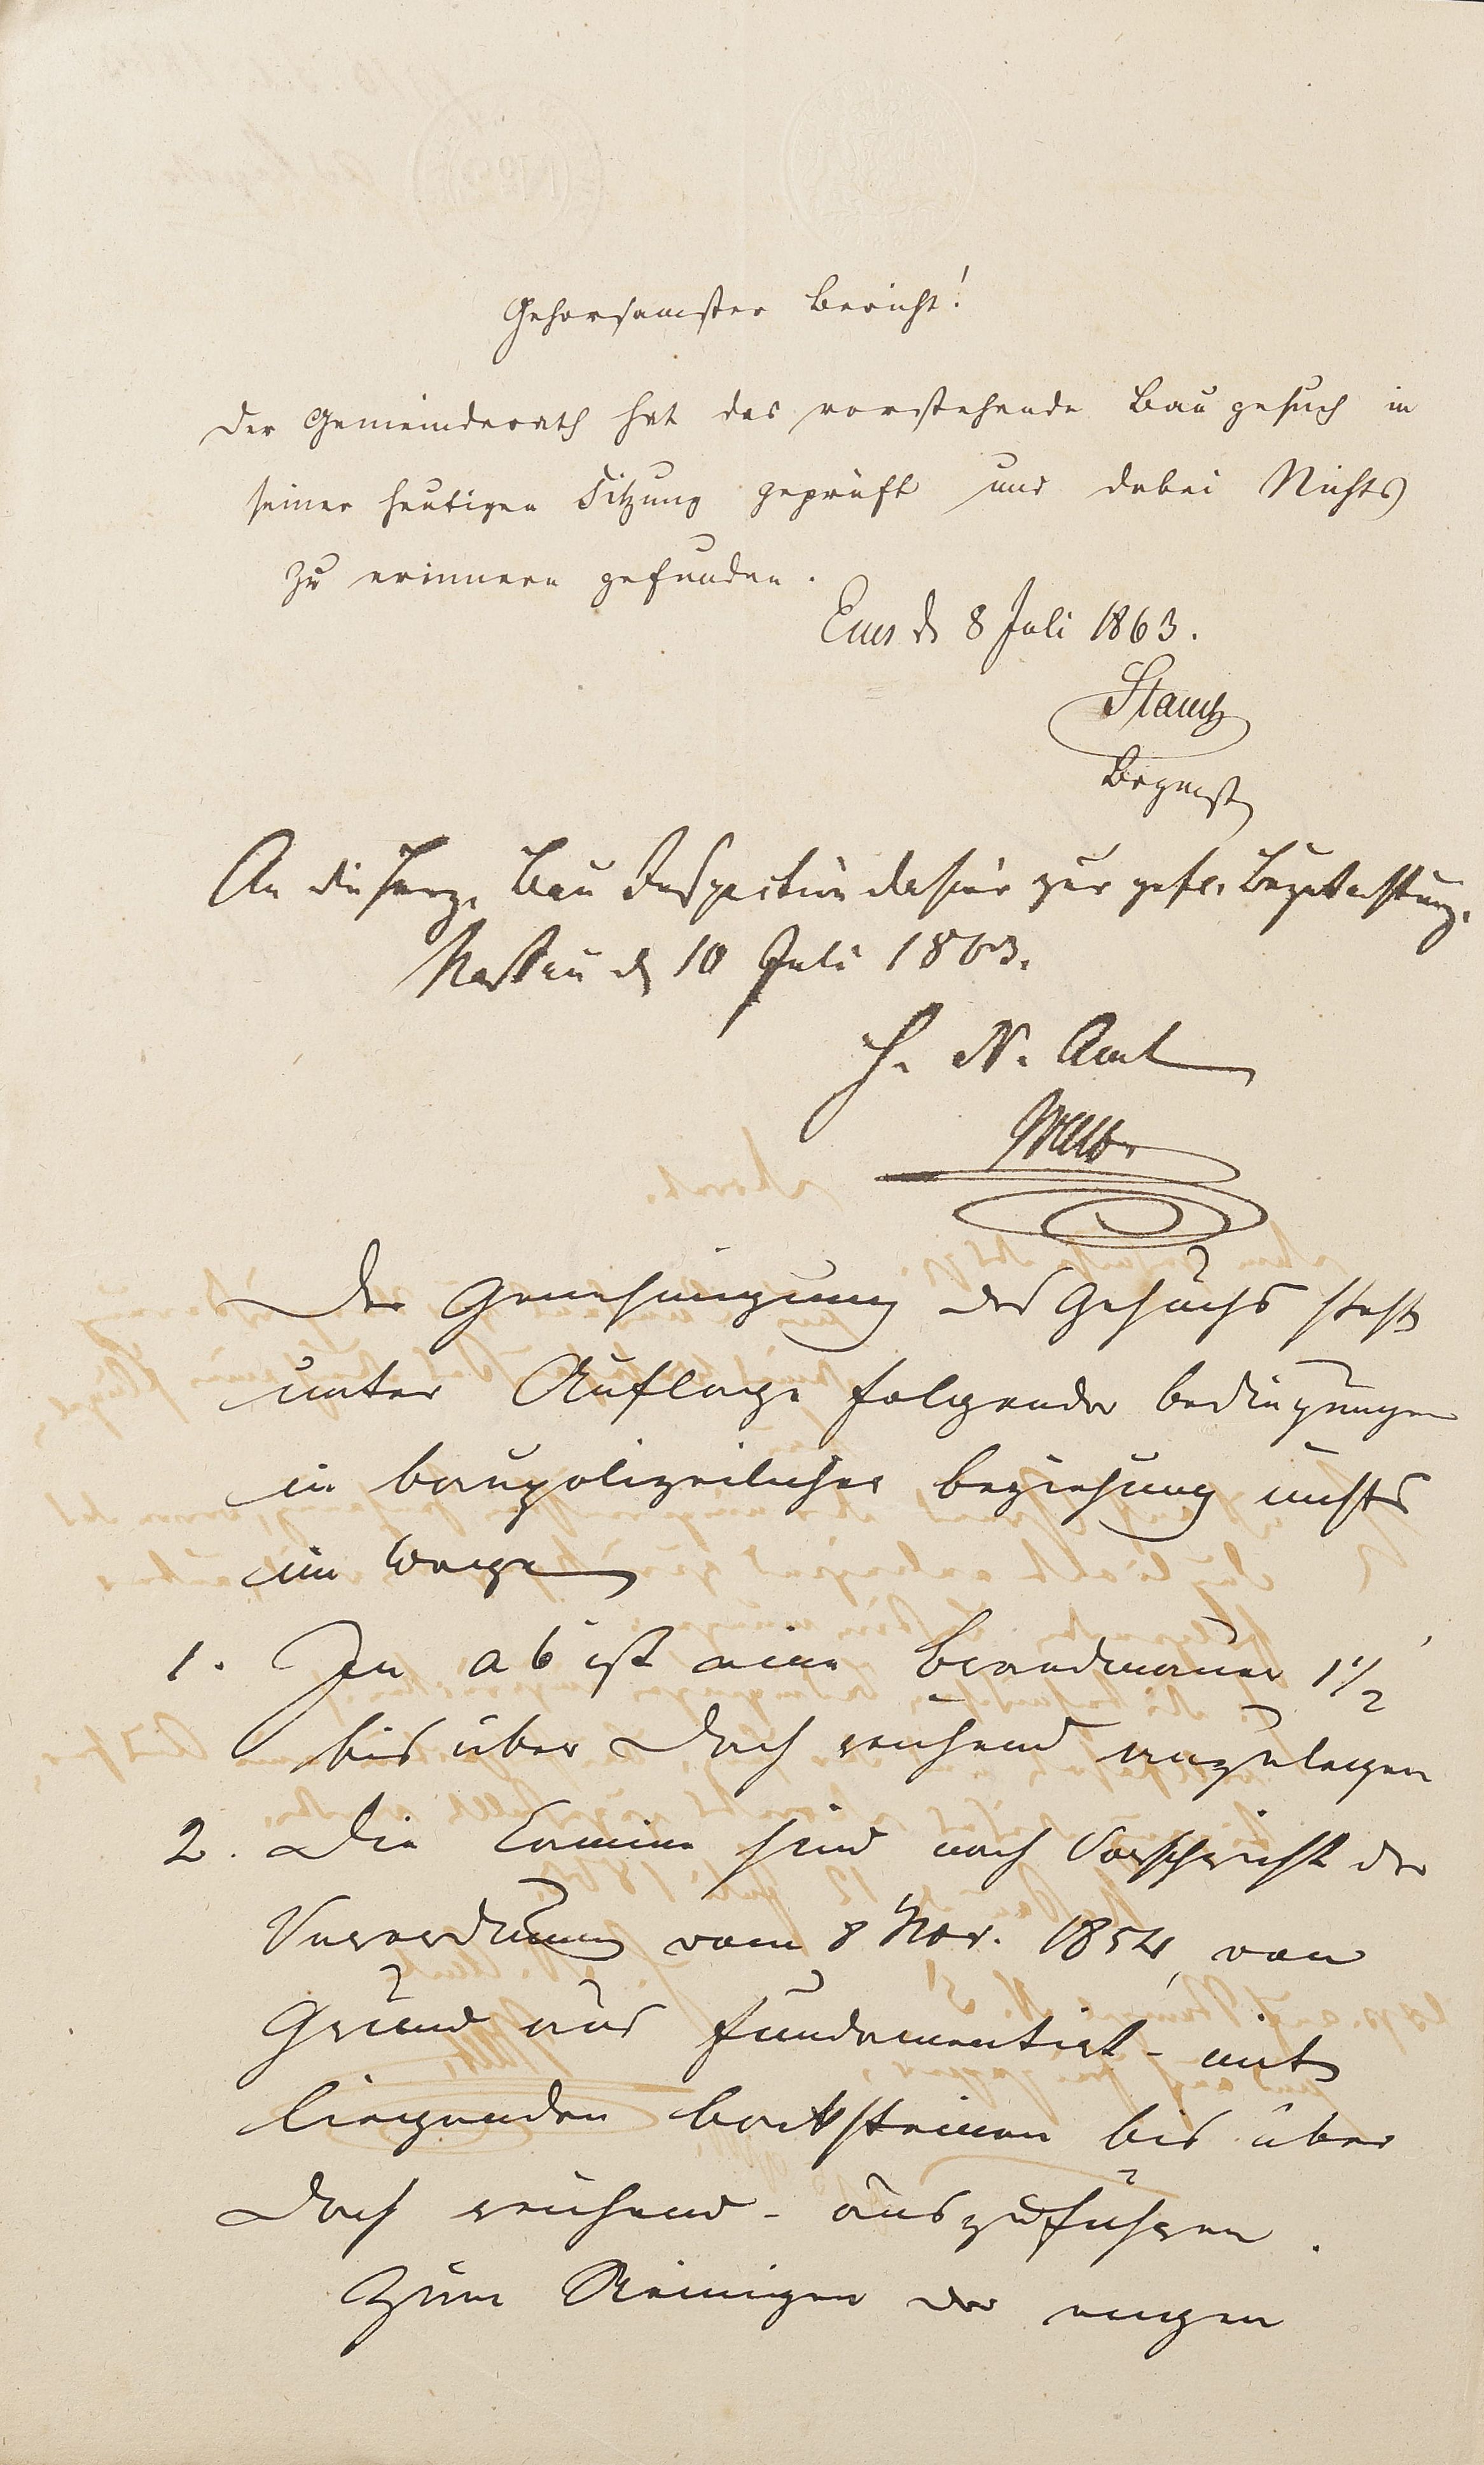 Gehorsamster Bericht!
Der Gemeinderath hat das vorstehende Baugesuch in
seiner heutigen Sitzung geprüft und dabei Nichts
zu erinnern gefunden.
Ems d 8 Juli 1863.
An die Herz. Bau Inspection dahier zur gefl. Begutachtung.
Nassau d 10 Juli 1863.
H. N. Amt
Der Genehmigung des Gesuchs steht
unter Auflage folgender Bedingungen
in baupolizeilicher Beziehung nichts
im Wege
1. In ab ist eine Brandmauer 1 1/2'
bis über Dach reichend anzulegen
2. Die Camine sind nach Vorschrift der
Verordnung vom 8 Nov. 1854, von
Grund aus fundamentirt - mit
liegenden Backsteinen bis über
Dach reichend - auszuführen.
Zum Reinigen der engen